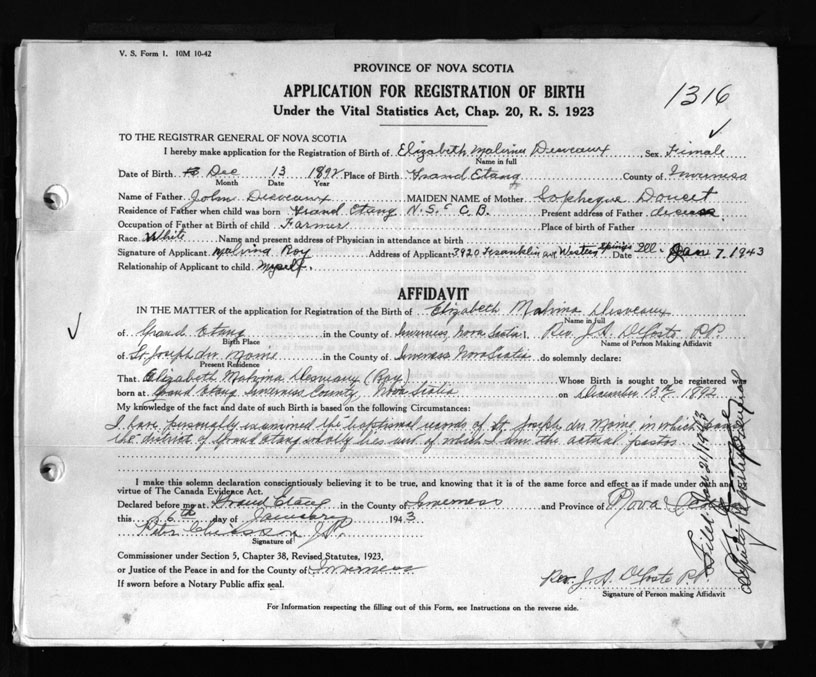 V. S. Form 1. 10M 10-42
PROVINCE OF NOVA SCOTIA
APPLICATION FOR REGISTRATION OF BIRTH
1316
Under the Vital Statistics Act, Chap. 20, R. S. 1923
TO THE REGISTRAR GENERAL OF NOVA SCOTIA
I hereby make application for the Registration of Birth of Elizabeth Malvina Desveaux Sex Female
Name in full
Date of Birth Dec 13 1892 Place of Birth Grand Etang County of Inverness
Month Date Year
Name of Father John Desveaux MAIDEN NAME of Mother Sopheque Doucet
Residence of Father when child was born Grand Etang N.S. C.B. Present address of Father
Occupation of Father at Birth of child Farmer Place of birth of Father
Race White Name and present address of Physician in attendance at birth
Signature of Applicant Malvina Roy Address of Applicant 3920 Franklin av Western Springs Ill. Date Jan 7 1943
Relationship of Applicant to child Myself.
AFFIDAVIT
IN THE MATTER of the application for Registration of the Birth of Elizabeth Malvina Desveaux
Name in full
of Grand Etang in the County of Inverness Nova Scotia I, Rev. J. A. DeCoste P.P.
Birth Place Name of Person Making Affidavit
of St. Joseph du Moine in the County of Inverness Nova Scotia do solemnly declare:
Present Residence
That Elizabeth Malvina Desveaux (Roy) Whose Birth is sought to be registered was
born at Grand Etang Inverness County, Nova Scotia on December 13th 1892
My knowledge of the fact and date of such Birth is based on the following Circumstances:
I have personally examined the baptismal records of St. Joseph du Moine in which
the district of Grand Etang wholly lies and of which I am the actual pastor
I make this solemn declaration conscientiously believing it to be true, and knowing that it is of the same force and effect as if made under oath and
virtue of The Canada Evidence Act.
Declared before me at Grand Etang in the County of Inverness and Province of Nova Scotia
this 16th day of January 1943
Chiasson J.P.
Signature of
Commissioner under Section 5, Chapter 38, Revised Statutes, 1923,
or Justice of the Peace in and for the County of Inverness
If sworn before a Notary Public affix seal.
Rev. J. A. DeCoste P.P.
Signature of Person making Affidavit
For Information respecting the filling out of this Form, see Instructions on the reverse side.
Filed Jan 21/1943
Deputy Registrar General